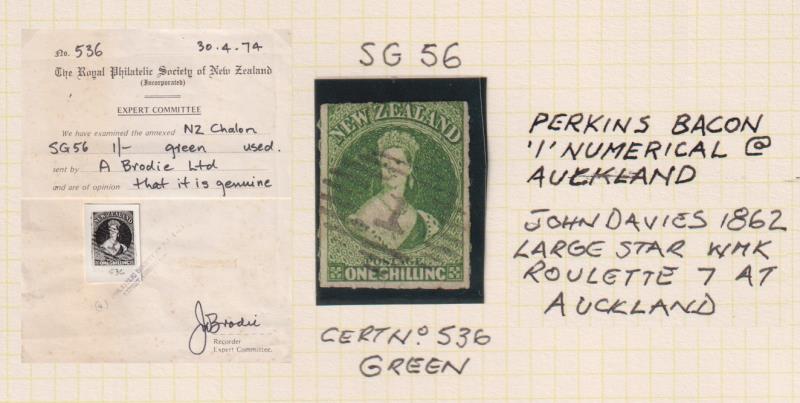 No. 536 30.4.74
The Royal Philatelic Society of New Zealand
(Incorporated)
EXPERT COMMITTEE
We have examined the annexed NZ Chalon
SG56 1/- green used.
sent by A Brodie Ltd
and are of opinion that it is genuine
NEW ZEALAND
ONE SHILLING
536
J Brodie
Recorder
Expert Committee.
SG 56
NEW ZEALAND
1
POSTAGE
ONE SHILLING
CERT Nº 536
GREEN
PERKINS BACON
'1' NUMERICAL @
AUCKLAND
JOHN DAVIES 1862
LARGE STAR WMK
ROULETTE 7 AT
AUCKLAND